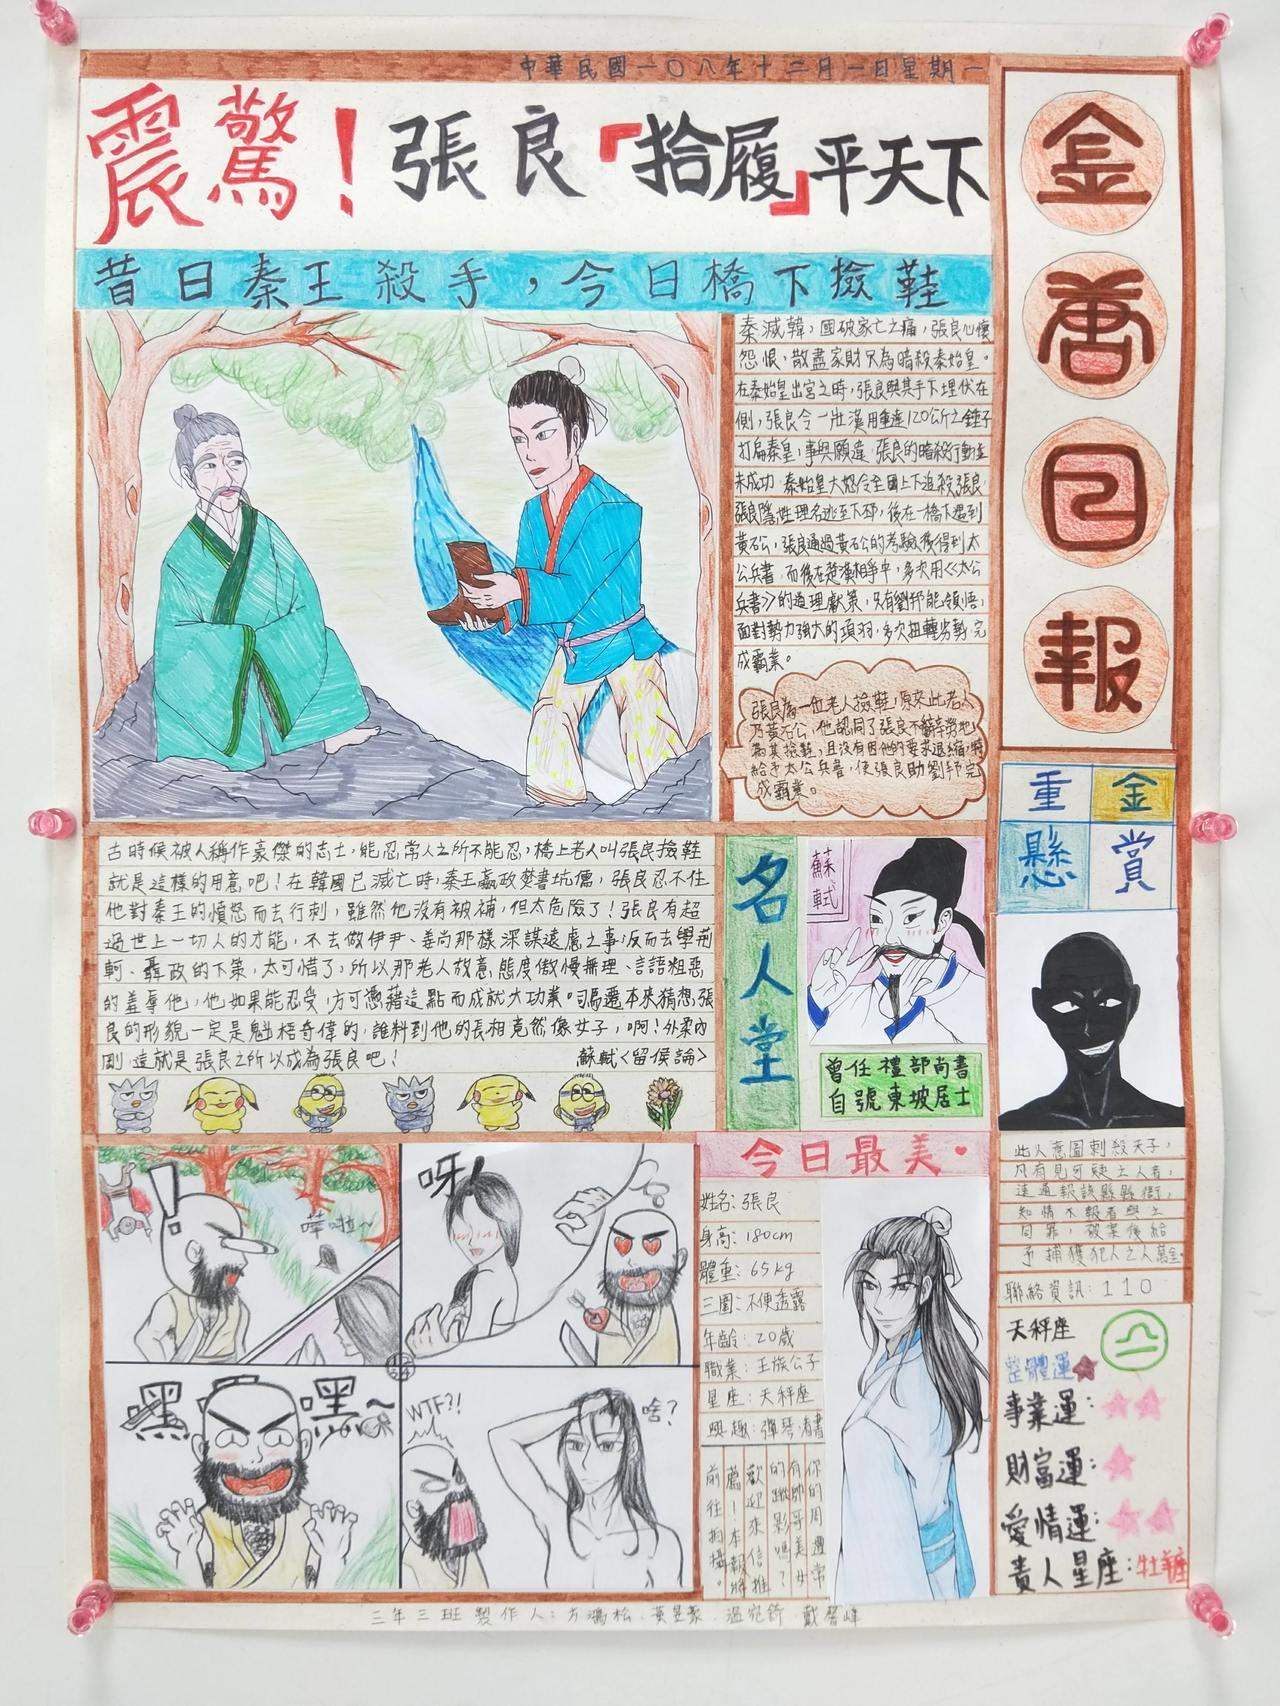 中華民國一〇八年十二月一日星期一
震驚！張良「拾履」平天下
昔日秦王殺手，今日橋下撿鞋
秦滅韓，國破家亡之痛，張良心懷
怨恨，散盡家財只為暗殺秦始皇。
在秦始皇出宮之時，張良與其手下埋伏在
側，張良令一壯漢用重達120公斤之錘子
打扁秦皇，事與願違，張良的暗殺行動並
未成功，秦始皇大怒令全國上下追殺張良，
張良隱姓埋名逃至下邳，後在一橋下遇到
黃石公，張良通過黃石公的考驗後得到太
公兵書，而後在楚漢相爭中，多次用《太公
兵書》的道理獻策，只有劉邦能領悟，
面對勢力強大的項羽，多次扭轉劣勢完
成霸業。
張良為一位老人撿鞋，原來此老人
乃黃石公，他認同了張良不辭辛勞地
為其撿鞋，且沒有因他的要求退縮，特
給予太公兵書，使張良助劉邦完
成霸業。
金
善
日
報
重金
懸賞
此人意圖刺殺天子，
凡有見可疑之人者，
速通報該縣縣衙，
知情不報者與之
同罪，破案後給
予捕獲犯人之人萬金。
聯絡資訊：110
古時候被人稱作豪傑的志士，能忍常人之所不能忍，橋上老人叫張良撿鞋
就是這樣的用意吧！在韓國已滅亡時，秦王嬴政焚書坑儒，張良忍不住
他對秦王的憤怒而去行刺，雖然他沒有被補，但太危險了！張良有超
過世上一切人的才能，不去做伊尹、姜尚那樣深謀遠慮之事，反而去學荊
軻、聶政的下策，太可惜了，所以那老人故意態度傲慢無理、言語粗惡
的羞辱他，他如果能忍受，方可憑藉這點而成就大功業。司馬遷本來猜想，張
良的形貌一定是魁梧奇偉的，誰料到他的長相竟然像女子，啊！外柔內
剛，這就是張良之所以成為張良吧！ 蘇軾<留侯論>
名人堂
蘇軾
曾任禮部尚書
自號東坡居士
嘩啦~
呀
嘿 嘿~
WTF?!
啥？
今日最美
姓名：張良
身高：180cm
體重：65kg
三圍：不便透露
年齡：20歲
職業：王族公子
星座：天秤座
興趣：彈琴、看書
你的周遭常
有帥哥美女
的蹤影嗎？
歡迎來信推
薦！本報將
前往拍攝。
天秤座
整體運★
事業運：★★
財富運：★
愛情運：★★
貴人星座：牡羊座
三年三班 製作人：方鴻松、黃昱豪、溫宛錡、戴啓峰